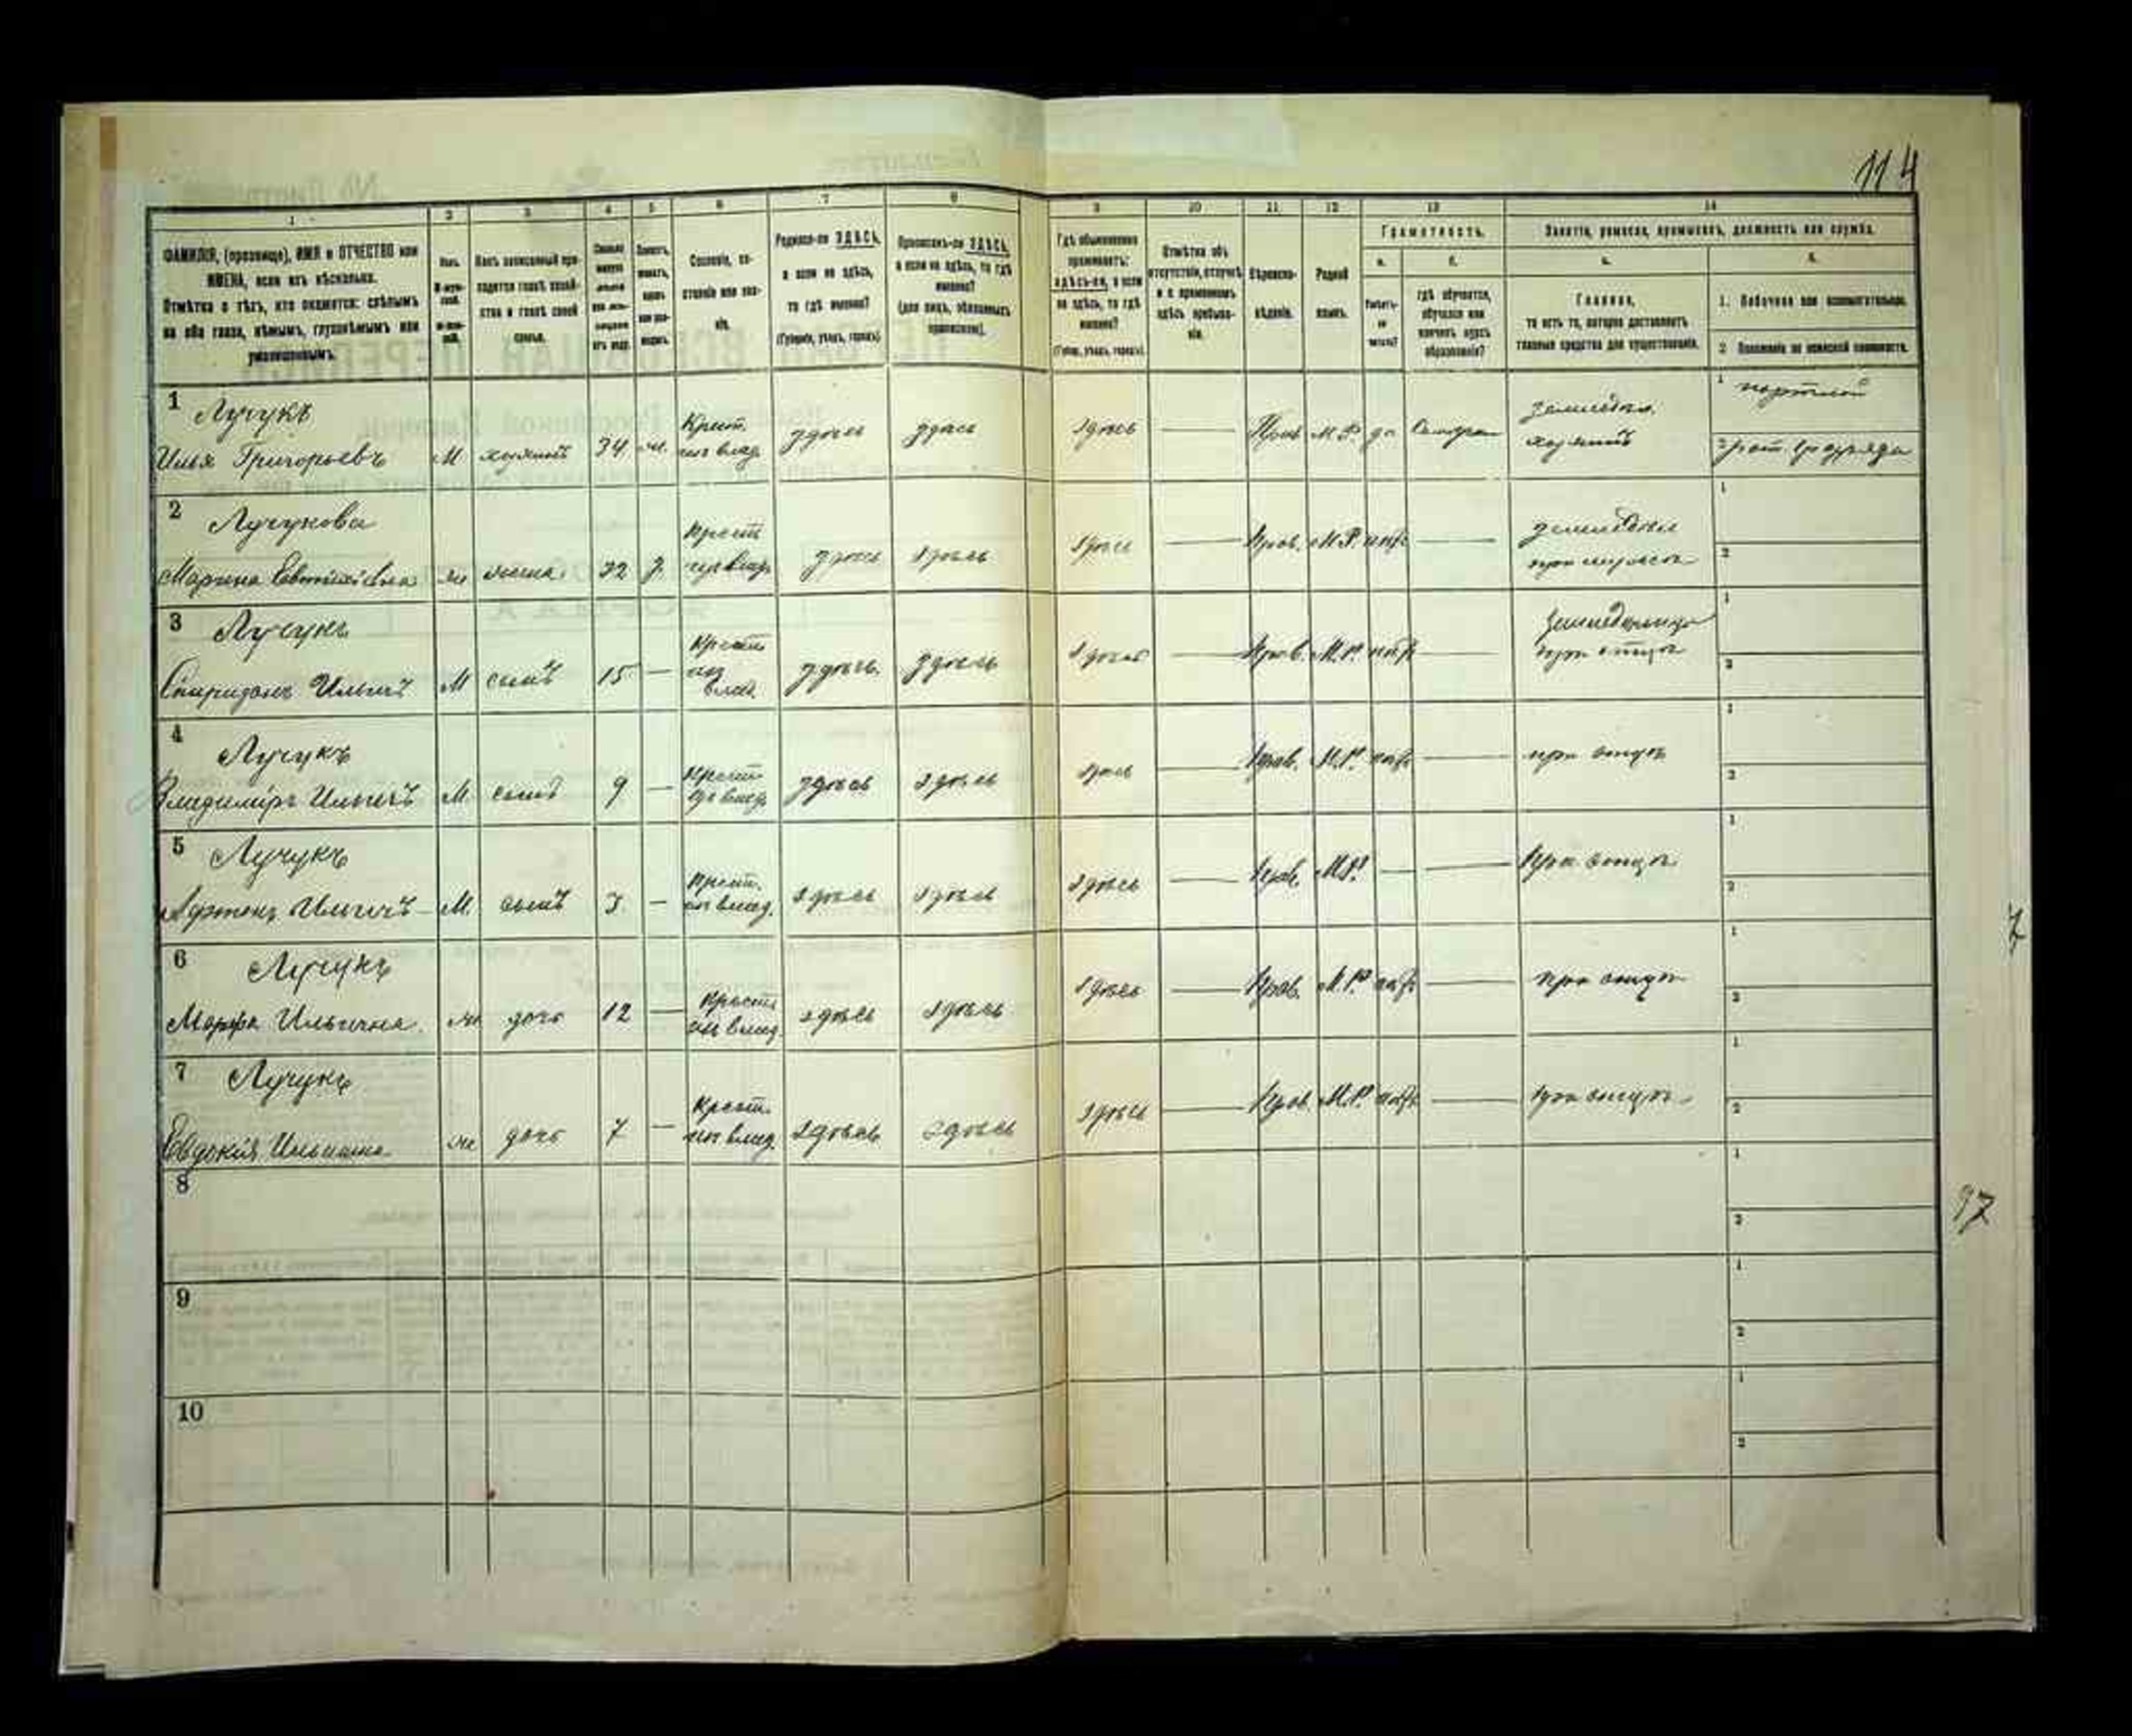 114
1 2 3 4 5 6 7 8 9 10 11 12 13 14
ФАМИЛІЯ, (прозвище), ИМЯ и ОТЧЕСТВО или
ИМЕНА, если ихъ нѣсколько.
Отмѣтка о тѣхъ, кто окажется: слѣпымъ
на оба глаза, нѣмымъ, глухонѣмымъ или
умалишеннымъ.
Сословіе, со-
стояніе или зва-
ніе.
Родился-ли ЗДѢСЬ,
а если не здѣсь,
то гдѣ именно?
(Губернія, уѣздъ, городъ).
Приписанъ-ли ЗДѢСЬ,
а если не здѣсь, то гдѣ
именно?
(для лицъ, обязанныхъ
припискою).
Гдѣ обыкновенно
проживаетъ:
здѣсь-ли, а если
не здѣсь, то гдѣ
именно?
(Губер., уѣздъ, городъ).
Отмѣтка объ
отсутствіи, отлучкѣ
и о временномъ
здѣсь пребыва-
ніи.
Вѣроиспо-
вѣданіе.
Родной
языкъ.
Грамотность.
а. б.
гдѣ обучается,
обучался или
кончилъ курсъ
образованія?
Занятіе, ремесло, промыселъ, должность или служба.
Главное,
то есть то, которое доставляетъ
главныя средства для существованія.
1. Побочное или вспомогательное.
2. Положеніе по воинской повинности.
1 Лучукъ
Илья Григорьевъ М хозяинъ 34 ж. Крест. изъ влад. здѣсь здѣсь здѣсь — Прав. М.Р. да
хозяинъ
1 портной
2
2 Лучукова
Марина м жена 32 З. Крест. здѣсь здѣсь здѣсь — Прав. М.Р. нѣтъ —
1
2
3 Лучукъ
Спиридонъ Ильичъ М сынъ 15 — Крест. изъ влад. здѣсь здѣсь здѣсь — Прав. М.Р. нѣтъ —
при отцѣ
1
2
4 Лучукъ
Владиміръ Ильичъ М сынъ 9 — Крест. изъ влад. здѣсь здѣсь здѣсь — Прав. М.Р. нѣтъ — при отцѣ
1
2
5 Лучукъ
Ильичъ М. сынъ 3 — Крест. изъ влад. здѣсь здѣсь здѣсь — Прав. М.Р. — — При отцѣ
1
2
6 Лучукъ
Марфа Ильична ж дочь 12 — Крест. изъ влад. здѣсь здѣсь здѣсь — Прав. М.Р. нѣтъ — при отцѣ
1
2
7 Лучукъ
Евдокія Ильична ж дочь 7 — Крест. изъ влад. здѣсь здѣсь здѣсь — Прав. М.Р. нѣтъ — при отцѣ
1
2
7
8
1
2
97
9
1
2
10
1
2